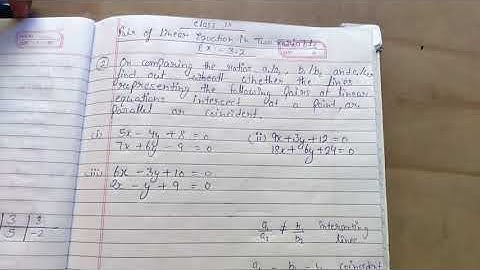 Class 10
Pair of linear Equation in Two variable
Ex - 3.2
② On comparing the ratios a₁/a₂, b₁/b₂ and c₁/c₂
find out whether the lines
representing the following pairs of linear
equations intersect at a point, are
parallel or coincident.
(i) 5x - 4y + 8 = 0 (ii) 9x + 3y + 12 = 0
7x + 6y - 9 = 0 18x + 6y + 24 = 0
(iii) 6x - 3y + 10 = 0
2x - y + 9 = 0
a₁/a₂ ≠ b₁/b₂ intersecting
lines
3 8
5 -2
coincident